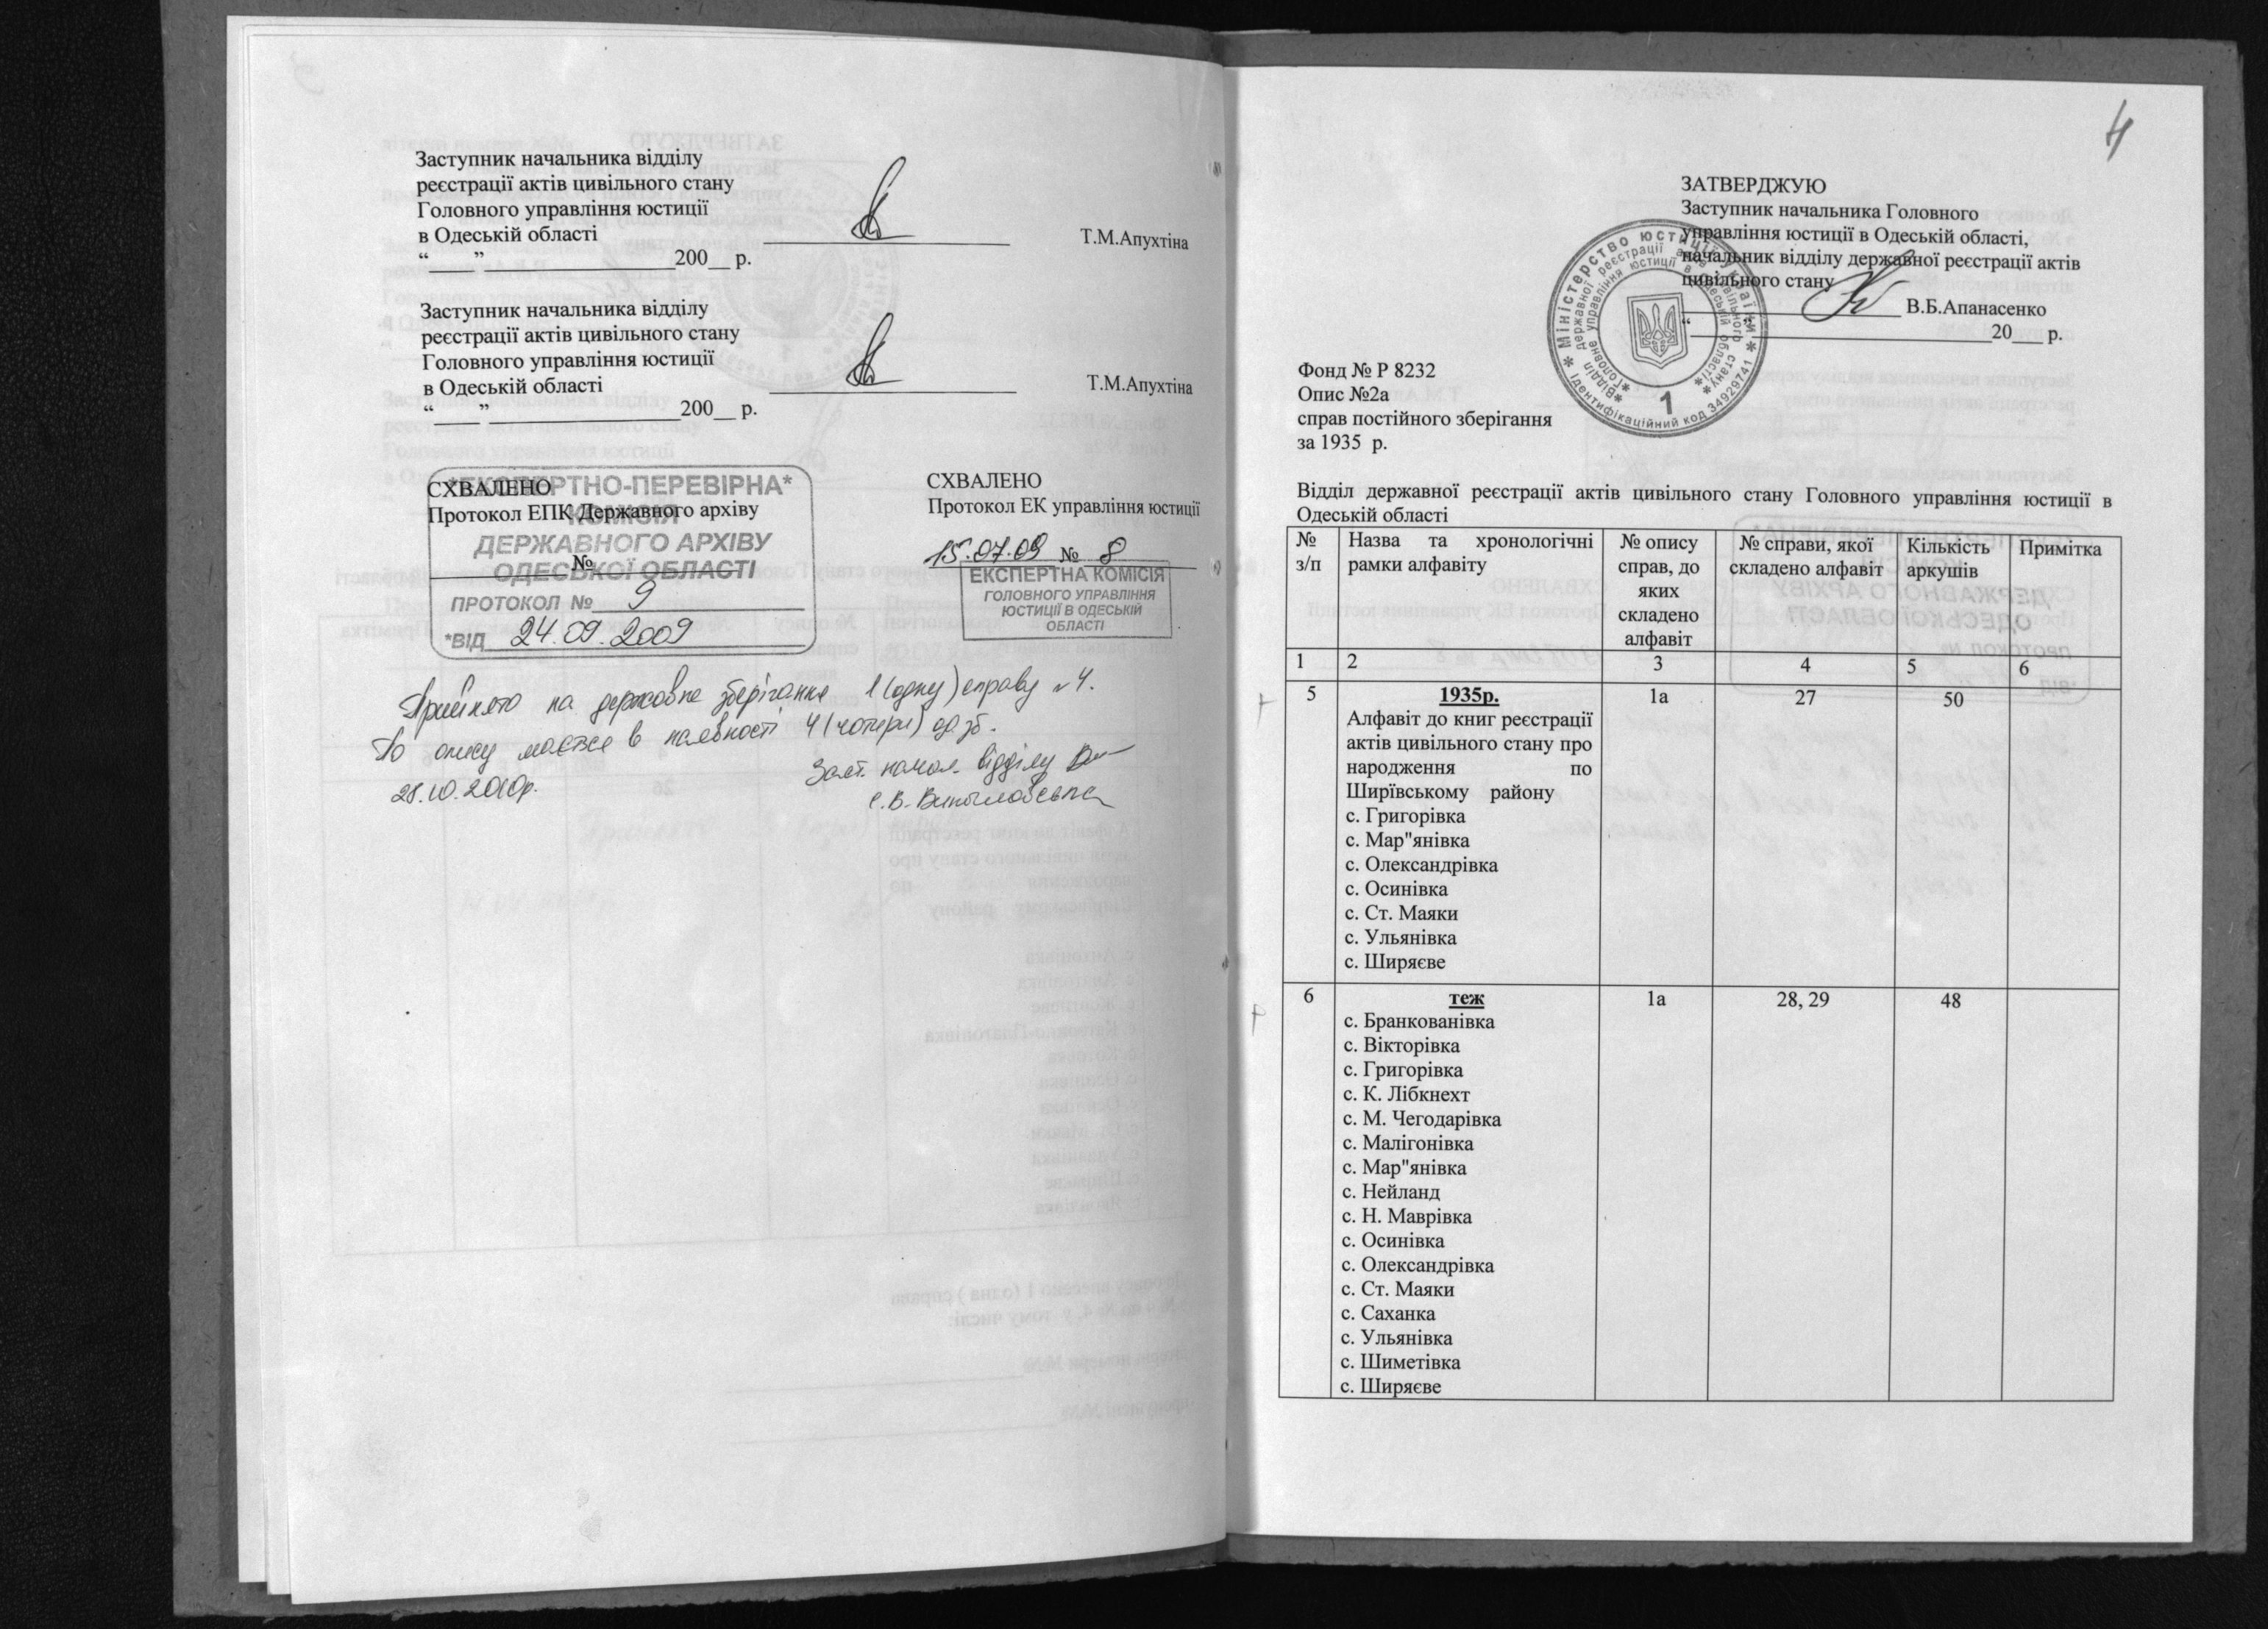 Заступник начальника відділу
реєстрації актів цивільного стану
Головного управління юстиції
в Одеській області ____________ Т.М.Апухтіна
“____” ________________200__ р.
Заступник начальника відділу
реєстрації актів цивільного стану
Головного управління юстиції
в Одеській області ____________ Т.М.Апухтіна
“____” ________________200__ р.
СХВАЛЕНО
Протокол ЕПК Державного архіву
№
*ЕКСПЕРТНО-ПЕРЕВІРНА*
КОМІСІЯ
ДЕРЖАВНОГО АРХІВУ
ОДЕСЬКОЇ ОБЛАСТІ
ПРОТОКОЛ № 9
*ВІД 24.09.2009
СХВАЛЕНО
Протокол ЕК управління юстиції
15.07.09 № 8
ЕКСПЕРТНА КОМІСІЯ
ГОЛОВНОГО УПРАВЛІННЯ
ЮСТИЦІЇ В ОДЕСЬКІЙ
ОБЛАСТІ
Прийнято на державне зберігання 1 (одну) справу №4.
По опису мається в наявності 4 (чотири) од.зб.
28.10.2010р.
Заст. начал. відділу
4
ЗАТВЕРДЖУЮ
Заступник начальника Головного
управління юстиції в Одеській області,
начальник відділу державної реєстрації актів
цивільного стану
____________ В.Б.Апанасенко
“____” ________________20___ р.
* Міністерство юстиції України * Ідентифікаційний код 34929741
*Відділ державної реєстрації актів цивільного стану*
*Головне управління юстиції в Одеській області*
1
Фонд № Р 8232
Опис №2а
справ постійного зберігання
за 1935 р.
Відділ державної реєстрації актів цивільного стану Головного управління юстиції в
Одеській області
№ з/п | Назва та хронологічні рамки алфавіту | № опису справ, до яких складено алфавіт | № справи, якої складено алфавіт | Кількість аркушів | Примітка
1 2 3 4 5 6
5 1935р. 1а 27 50
Алфавіт до книг реєстрації
актів цивільного стану про
народження по
Ширївському району
с. Григорівка
с. Мар"янівка
с. Олександрівка
с. Осинівка
с. Ст. Маяки
с. Ульянівка
с. Ширяєве
6 теж 1а 28, 29 48
с. Бранкованівка
с. Вікторівка
с. Григорівка
с. К. Лібкнехт
с. М. Чегодарівка
с. Малігонівка
с. Мар"янівка
с. Нейланд
с. Н. Маврівка
с. Осинівка
с. Олександрівка
с. Ст. Маяки
с. Саханка
с. Ульянівка
с. Шиметівка
с. Ширяєве